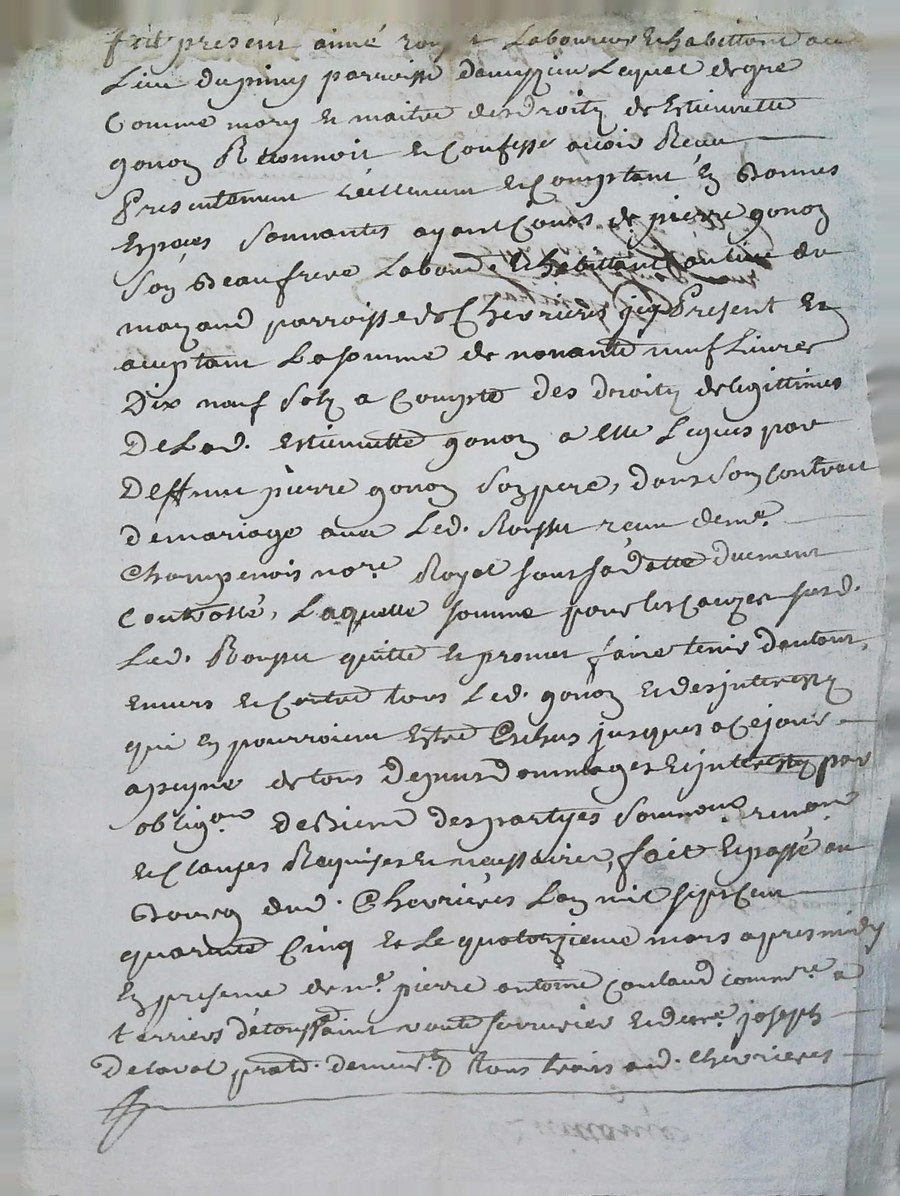 fut présent aimé laboureur & habittant au
Lieu du piney parroisse lequel de gré
Comme mary et maitre des droits de Estiennette
gonon Reconnoit et Confesse avoir Receu
Presentement réellement et Comptant En Bonnes
Espèces sonnantes ayant Cours de pierre gonon
son Beaufrere Labour. & habittant au lieu du
mazaud parroisse de Chevrieres icy Present et
aceptant La somme de nonante neuf Livres
Dix neuf sols a Compte des droits de legittimes
De Lad. estiennette gonon a elle Legués par
Deffunt pierre gonon son pere, dans son Contrait
de mariage avec Led. receu de me.
Champenois nore. Royal sous sa datte duement
Controllé, Laquelle somme pour les Causes susd.
Led. quitte et promet faire tenir d'autour,
envers et Contre tous Led. gonon et des interests
qui en pourroient Estre Echus jusques a Ce jour
a peyne de tous depens dommages & interests par
obligaon. de Biens des partyes renon.
et Clauses Requises et necessaires, fait et passé au
Bourg dud. Chevrières L'an mil sept Cent
quarante Cinq et Le quatorzieme mars apres midy
En presence de me. pierre antoine Coulaud commre. a
terriers de toussaint serrurier et de me. joseph
Delaval pratd. demeurt. tous trois aud. Chevrieres